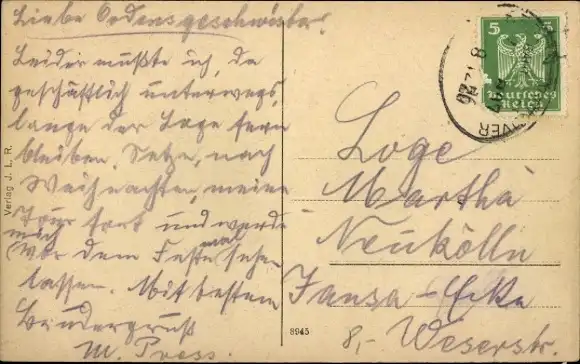 Liebe Ordensgeschwister!
Leider mußte ich, da
geschäftlich unterwegs,
lange der Loge fern
bleiben. Setze, nach
Weihnachten, meine
Tour fort und werde
mich vor dem Feste mal sehen
lassen. Mit bestem
Brudergruß
M. Press.
Verlag J. L. R.
8945
5 5
Deutsches
Reich
Loge
Martha
Neukölln
Jansa-Ecke
8,- Weserstr.